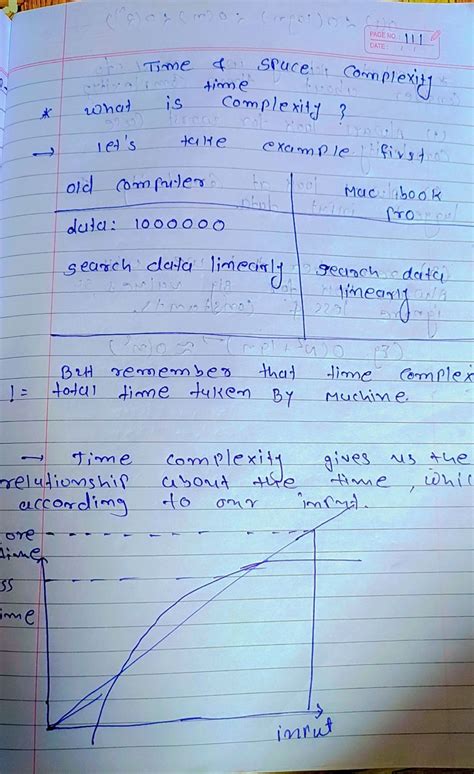 PAGE NO.: 111
DATE:
Time & space complexity
time
* what is complexity ?
→ let's take example first
old computer
Mac book
pro
data: 1000000
search data linearly
search data
linearly
But remember that time complex
!= total time taken By Machine.
→ Time complexity gives us the
relationship about the time, whic
according to our input.
ore
time
ss
ime
input